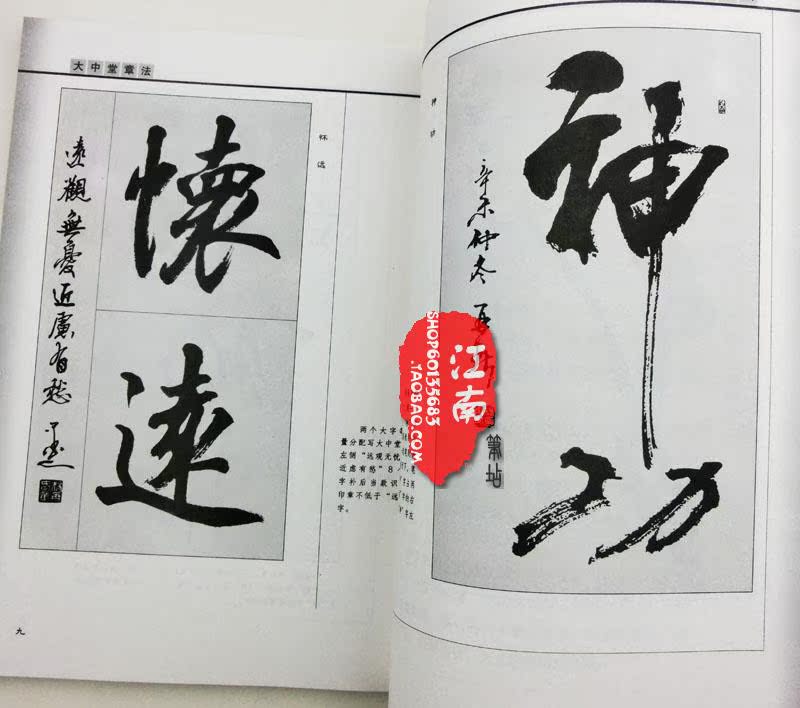 大中堂章法
懷
遠
遠觀無憂近慮有愁
怀远
两个大字
量分配写大中堂
左侧“远观无忧
近虑有愁”8
字补后当款识
印章不低于“远
字。
九
神功
辛未仲冬
神功
SHOP60135683
.TAOBAO.COM
江南
第站